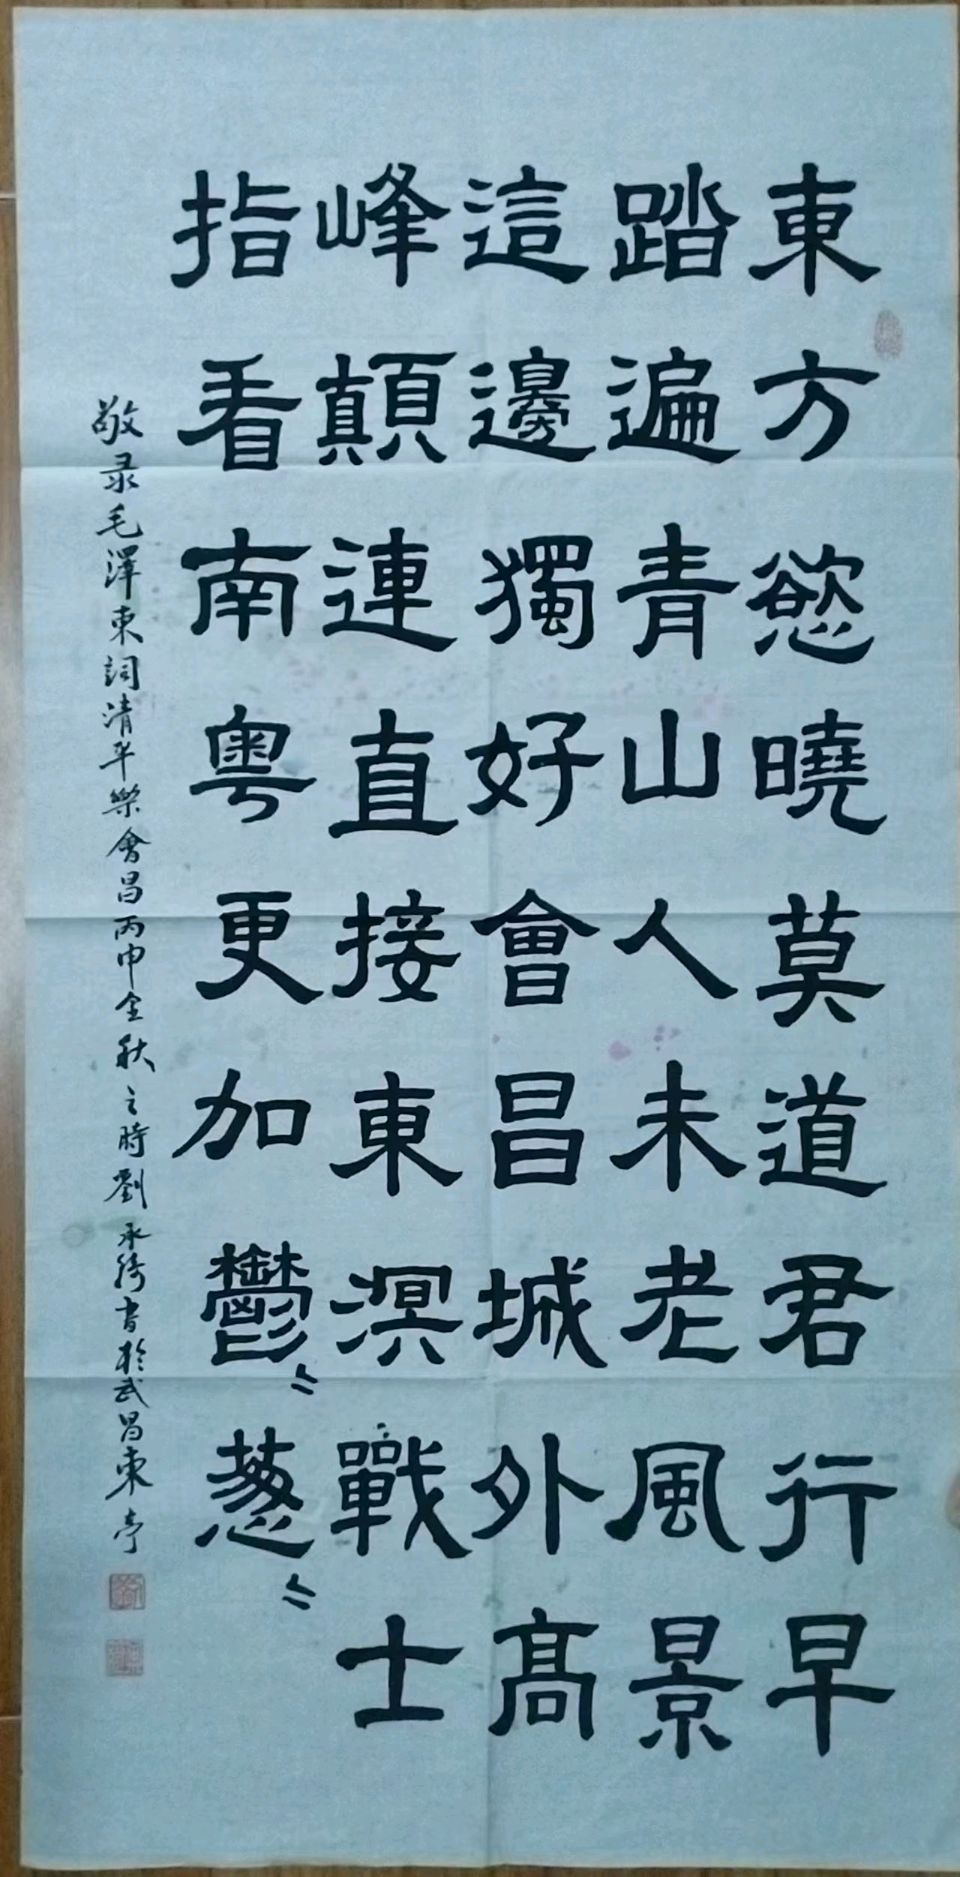 東方慾曉莫道君行早
踏遍青山人未老風景
這邊獨好會昌城外髙
峰顛連直接東溟戰士
指看南粤更加鬱〻葱〻
敬录毛澤東詞清平樂會昌丙申金秋之時劉承绮書於武昌東亭